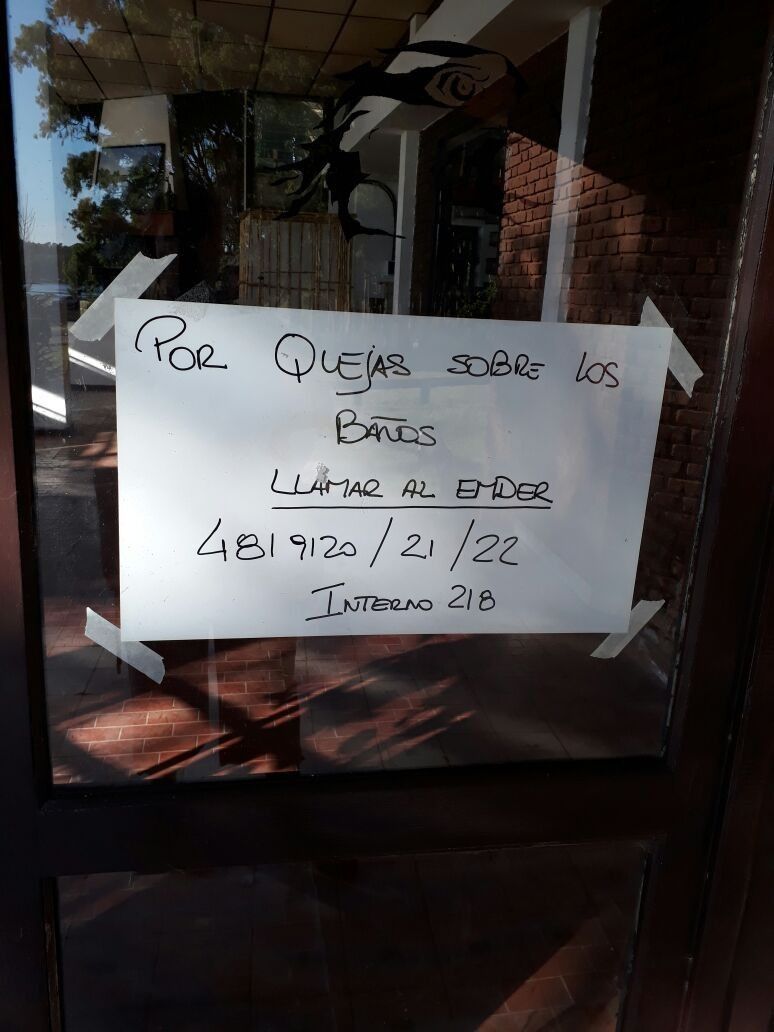 POR QUEJAS SOBRE LOS
BAÑOS
LLAMAR AL EMDER
4819120 / 21 / 22
INTERNO 218